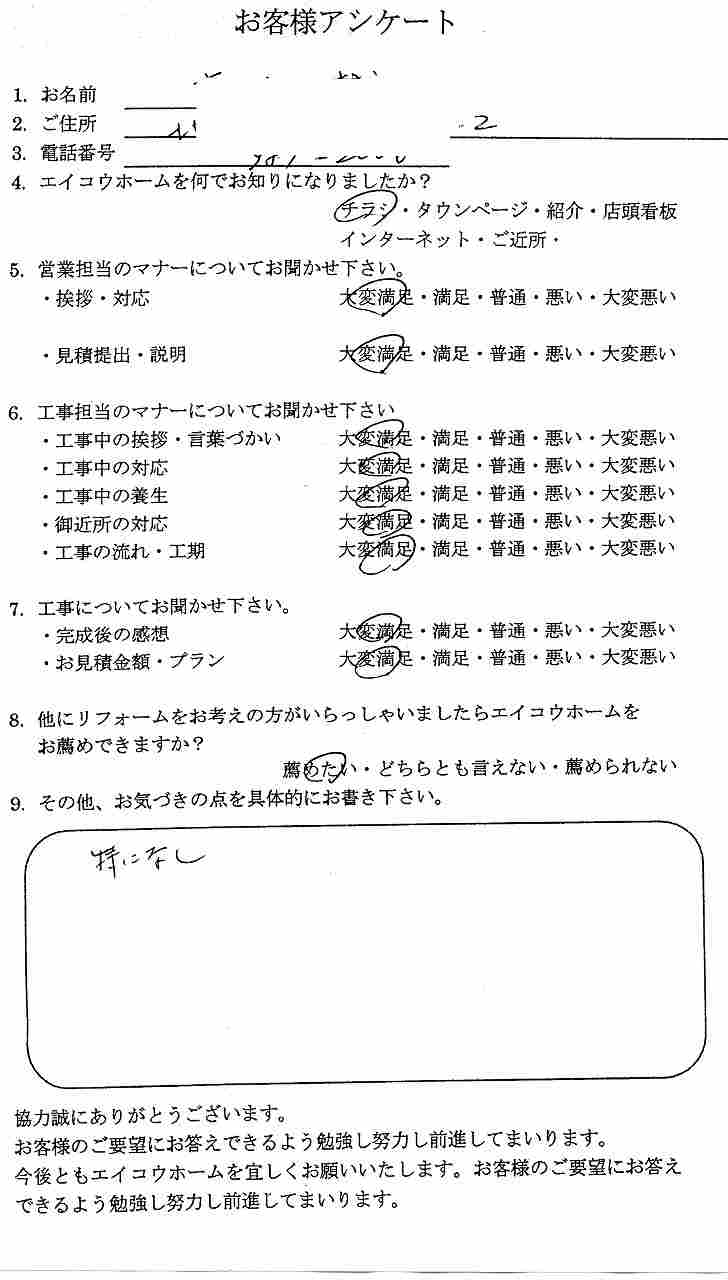 お客様アンケート
1. お名前
2. ご住所 2
3. 電話番号
4. エイコウホームを何でお知りになりましたか？
チラシ・タウンページ・紹介・店頭看板
インターネット・ご近所・
5. 営業担当のマナーについてお聞かせ下さい。
・挨拶・対応 大変満足・満足・普通・悪い・大変悪い
・見積提出・説明 大変満足・満足・普通・悪い・大変悪い
6. 工事担当のマナーについてお聞かせ下さい
・工事中の挨拶・言葉づかい 大変満足・満足・普通・悪い・大変悪い
・工事中の対応 大変満足・満足・普通・悪い・大変悪い
・工事中の養生 大変満足・満足・普通・悪い・大変悪い
・御近所の対応 大変満足・満足・普通・悪い・大変悪い
・工事の流れ・工期 大変満足・満足・普通・悪い・大変悪い
7. 工事についてお聞かせ下さい。
・完成後の感想 大変満足・満足・普通・悪い・大変悪い
・お見積金額・プラン 大変満足・満足・普通・悪い・大変悪い
8. 他にリフォームをお考えの方がいらっしゃいましたらエイコウホームを
お薦めできますか？
薦めたい・どちらとも言えない・薦められない
9. その他、お気づきの点を具体的にお書き下さい。
特になし
協力誠にありがとうございます。
お客様のご要望にお答えできるよう勉強し努力し前進してまいります。
今後ともエイコウホームを宜しくお願いいたします。お客様のご要望にお答え
できるよう勉強し努力し前進してまいります。